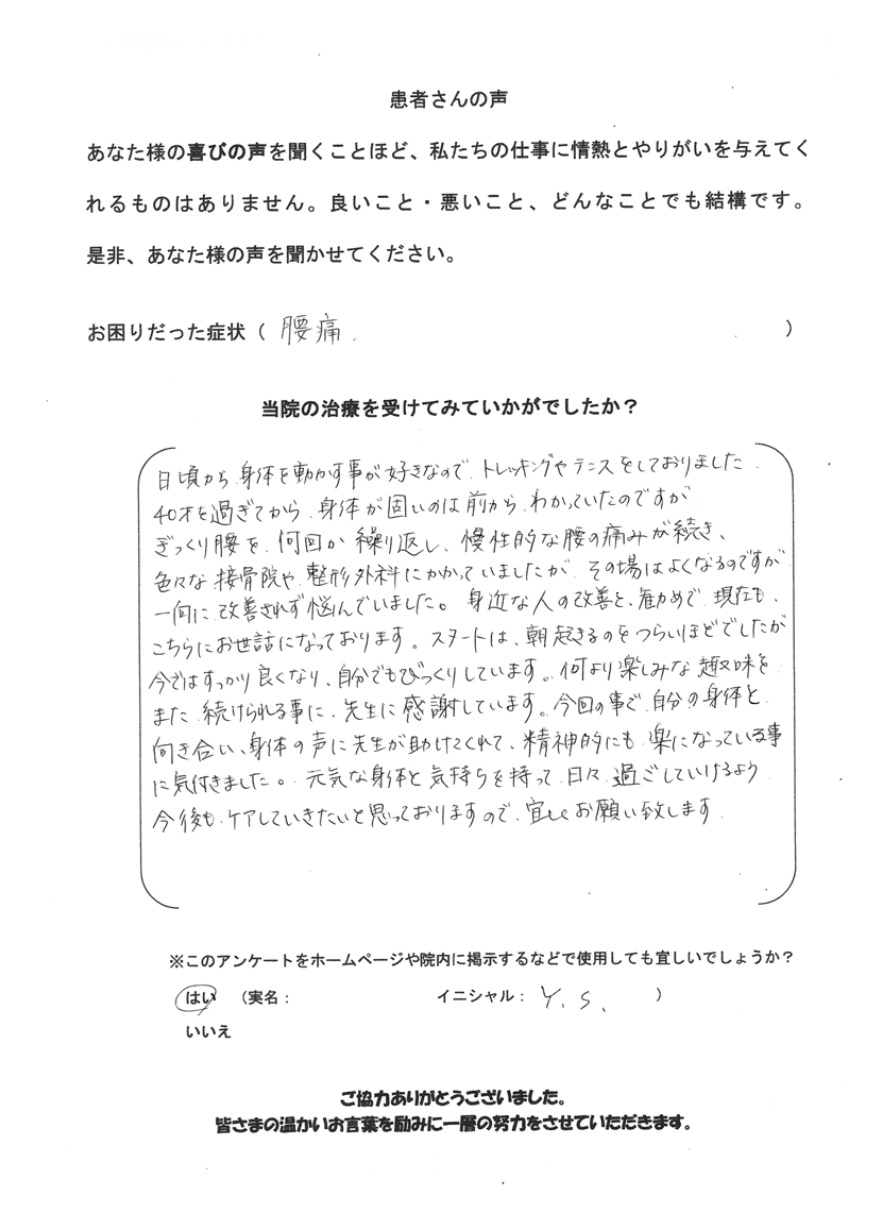 患者さんの声
あなた様の喜びの声を聞くことほど、私たちの仕事に情熱とやりがいを与えてく
れるものはありません。良いこと・悪いこと、どんなことでも結構です。
是非、あなた様の声を聞かせてください。
お困りだった症状（ 腰痛. ）
当院の治療を受けてみていかがでしたか？
日頃から身体を動かす事が好きなので、トレッキングやテニスをしておりました.
40才を過ぎてから、身体が固いのは前から、わかっていたのですが
ぎっくり腰を、何回か繰り返し、慢性的な腰の痛みが続き、
色々な接骨院や、整形外科にかかっていましたが、その場はよくなるのですが
一向に改善されず悩んでいました。身近な人の改善と、勧めで、現在も、
こちらにお世話になっております。スタートは、朝起きるのをつらいほどでしたが
今ではすっかり良くなり、自分でもびっくりしています。何より楽しみな趣味を
また続けられる事に、先生に感謝しています。今回の事で、自分の身体と
向き合い、身体の声に先生が助けてくれて、精神的にも、楽になっている事
に気付きました。元気な身体と気持ちを持って、日々、過ごしていけるよう
今後も、ケアしていきたいと思っておりますので、宜しくお願い致します.
※このアンケートをホームページや院内に掲示するなどで使用しても宜しいでしょうか？
はい （実名： イニシャル： Y. S. ）
いいえ
ご協力ありがとうございました。
皆さまの温かいお言葉を励みに一層の努力をさせていただきます。